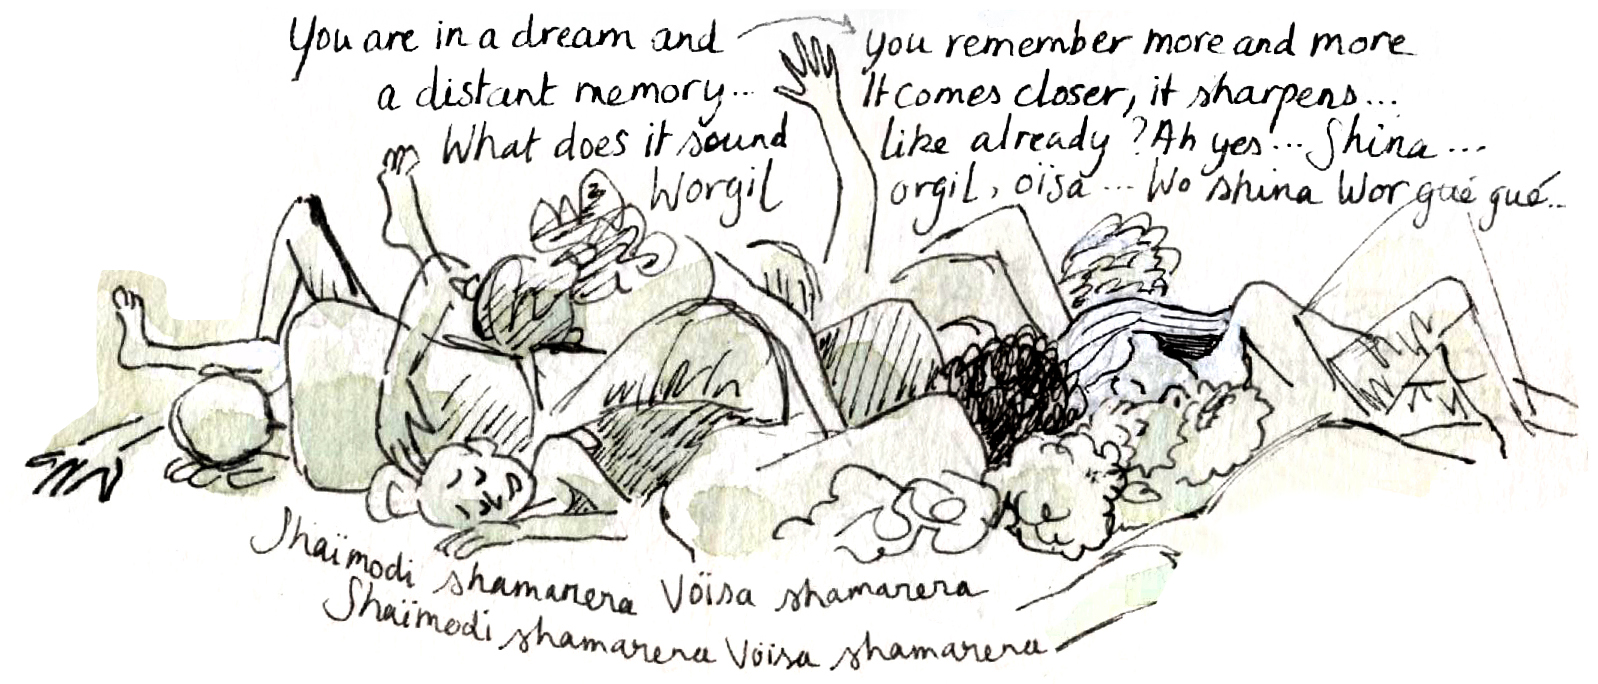 You are in a dream and
a distant memory...
What does it sound
Worgil
you remember more and more
It comes closer, it sharpens...
like already? Ah yes... Shina...
orgil, oïsa... Wo shina Wor gué gué..
Shaïmodi shamarera Voïsa shamarera
Shaïmodi shamarera Voïsa shamarera